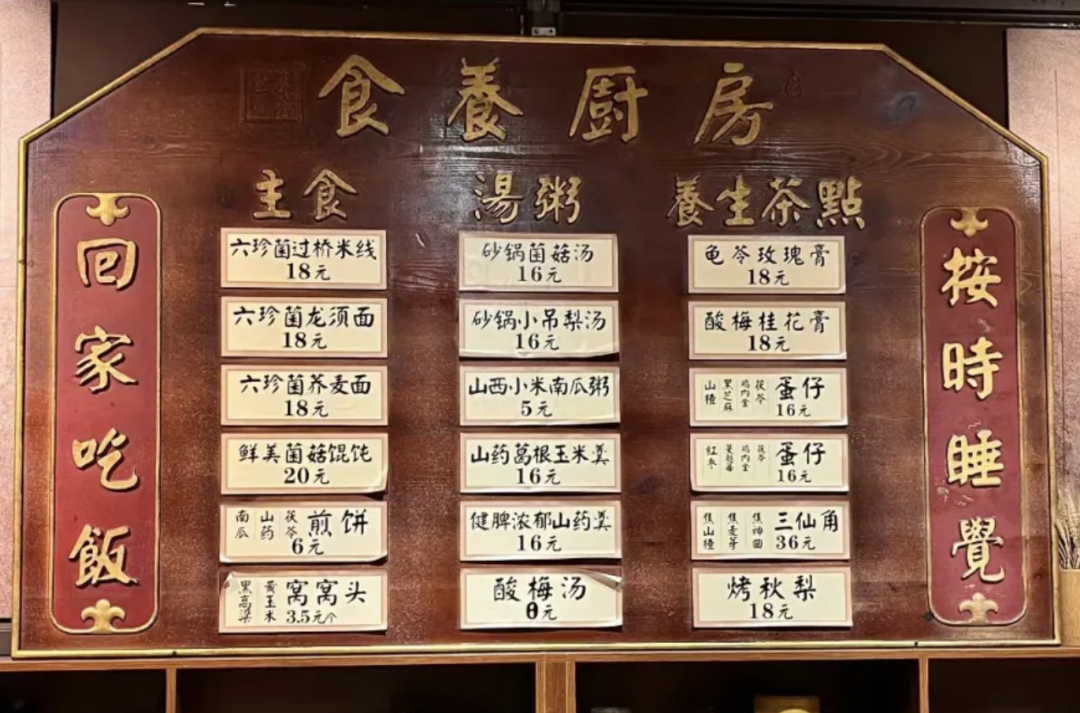 食養厨房
回家吃飯
主食
六珍菌过桥米线
18元
六珍菌龙须面
18元
六珍菌荞麦面
18元
鲜美菌菇馄饨
20元
南瓜 山药 茯苓 煎饼
6元
黑高粱 黄玉米 窝窝头
3.5元个
湯粥
砂锅菌菇汤
16元
砂锅小吊梨汤
16元
山西小米南瓜粥
5元
山药葛根玉米羹
16元
健脾浓郁山药羹
16元
酸梅汤
0元
養生茶點
龟苓玫瑰膏
18元
酸梅桂花膏
18元
山楂 黑芝麻 鸡内金 茯苓 蛋仔
16元
红枣 蔓越莓 鸡内金 茯苓 蛋仔
16元
焦山楂 焦麦芽 焦神曲 三仙角
36元
烤秋梨
18元
按時睡覺